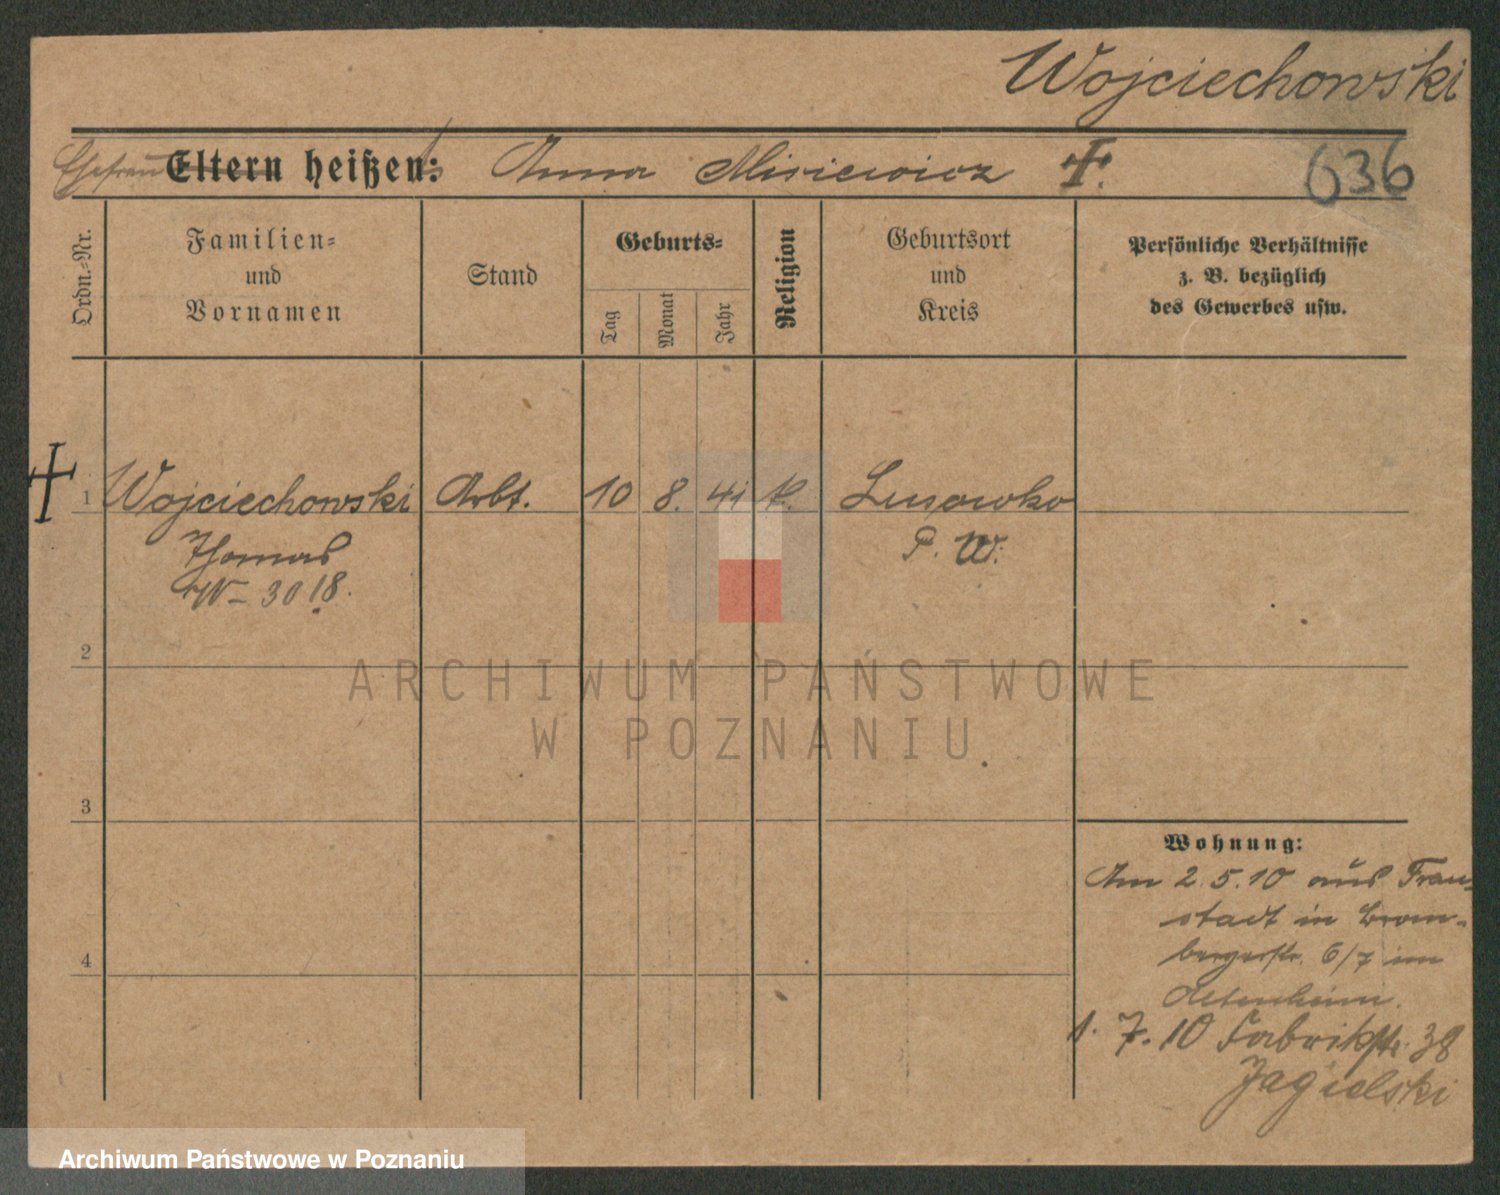 Wojciechowski
Ehefrau Eltern heißen: Anna Misiewicz †.
636
Ordn.-Nr.
Familien-
und
Vornamen
Stand
Geburts-
Tag
Monat
Jahr
Religion
Geburtsort
und
Kreis
Persönliche Verhältnisse
z. B. bezüglich
des Gewerbes usw.
† 1 Wojciechowski Arbt. 10 8. 41 k. Lussowko
Thomas P. W.
W – 3018.
2
ARCHIWUM PAŃSTWOWE
W POZNANIU
3
4
Wohnung:
Am 2.5.10 aus Frau-
stadt in Brom-
bergerstr. 6/7 im
Altenheim.
1. 7. 10 Fabrikstr. 38
Jagielski
Archiwum Państwowe w Poznaniu